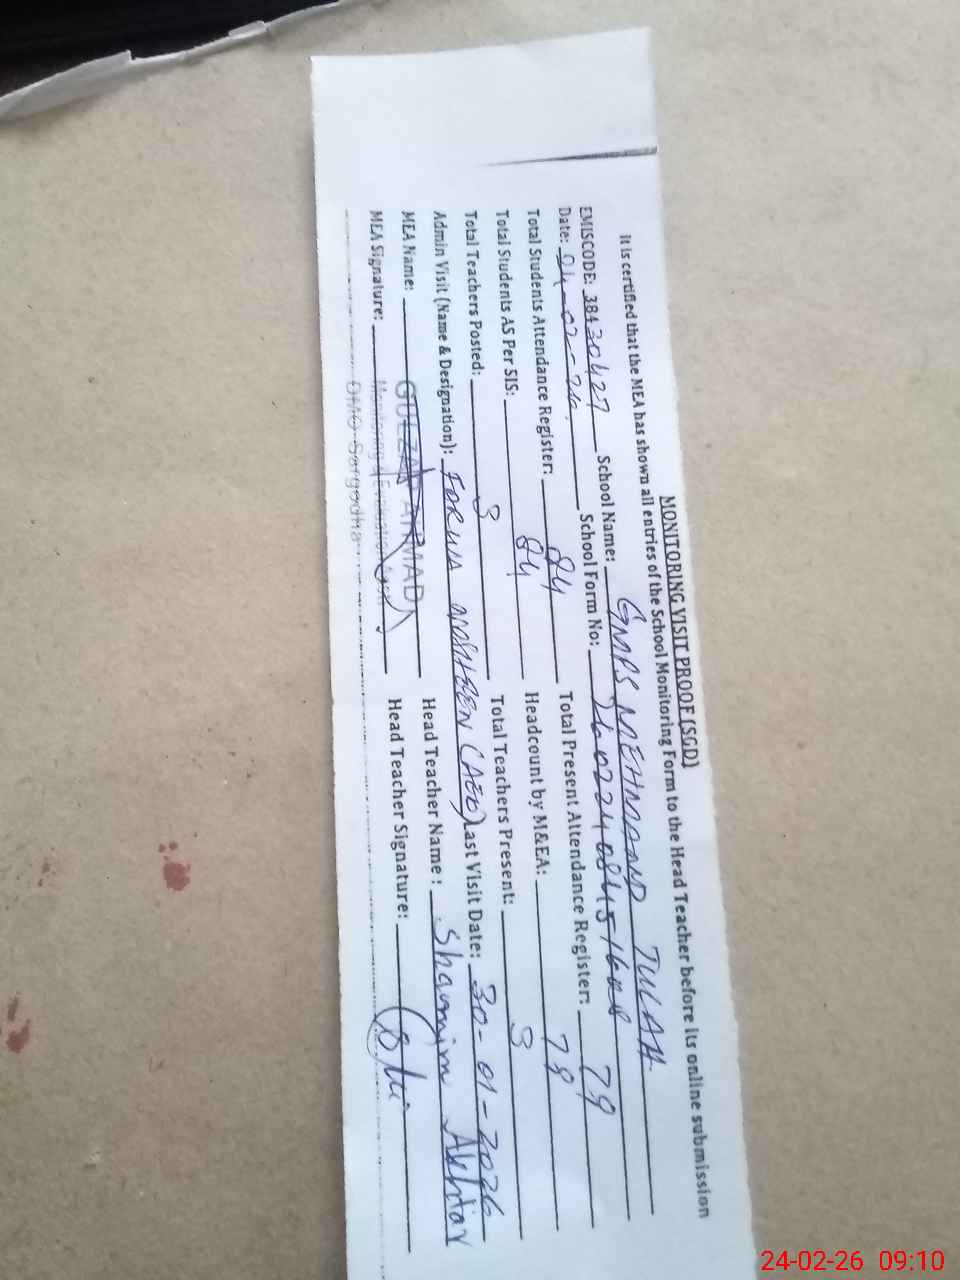 MONITORING VISIT PROOF (SGD)
It is certified that the MEA has shown all entries of the School Monitoring Form to the Head Teacher before its online submission
EMISCODE: 38430427 School Name: GMPS MEHMAND TULAH
Date: 24-02-26. School Form No:
Total Students Attendance Register: 84 Total Present Attendance Register: 79
Total Students AS Per SIS: 84 Headcount by M&EA: 79
Total Teachers Posted: 3 Total Teachers Present: 3
Admin Visit (Name & Designation): (AEO) Last Visit Date: 30-01-2026
MEA Name: GULZAR AHMAD Head Teacher Name: Shamim Akhtar
MEA Signature: Monitoring & Evaluation Head Teacher Signature:
DMO Sargodha
24-02-26 09:10